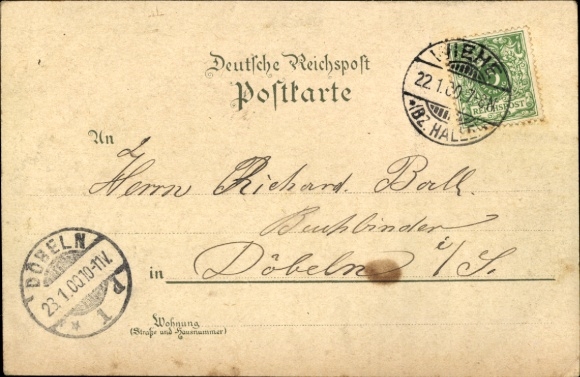 Deutsche Reichspost
Postkarte
WIEHE
22.1.00
*(BZ. HALLE
5
REICHSPOST
An
Herrn Richard Ball.
Buchbinder
in Döbeln i/S.
DÖBELN
23.1.00.10-11V.
* 1 P
Wohnung
(Straße und Hausnummer)